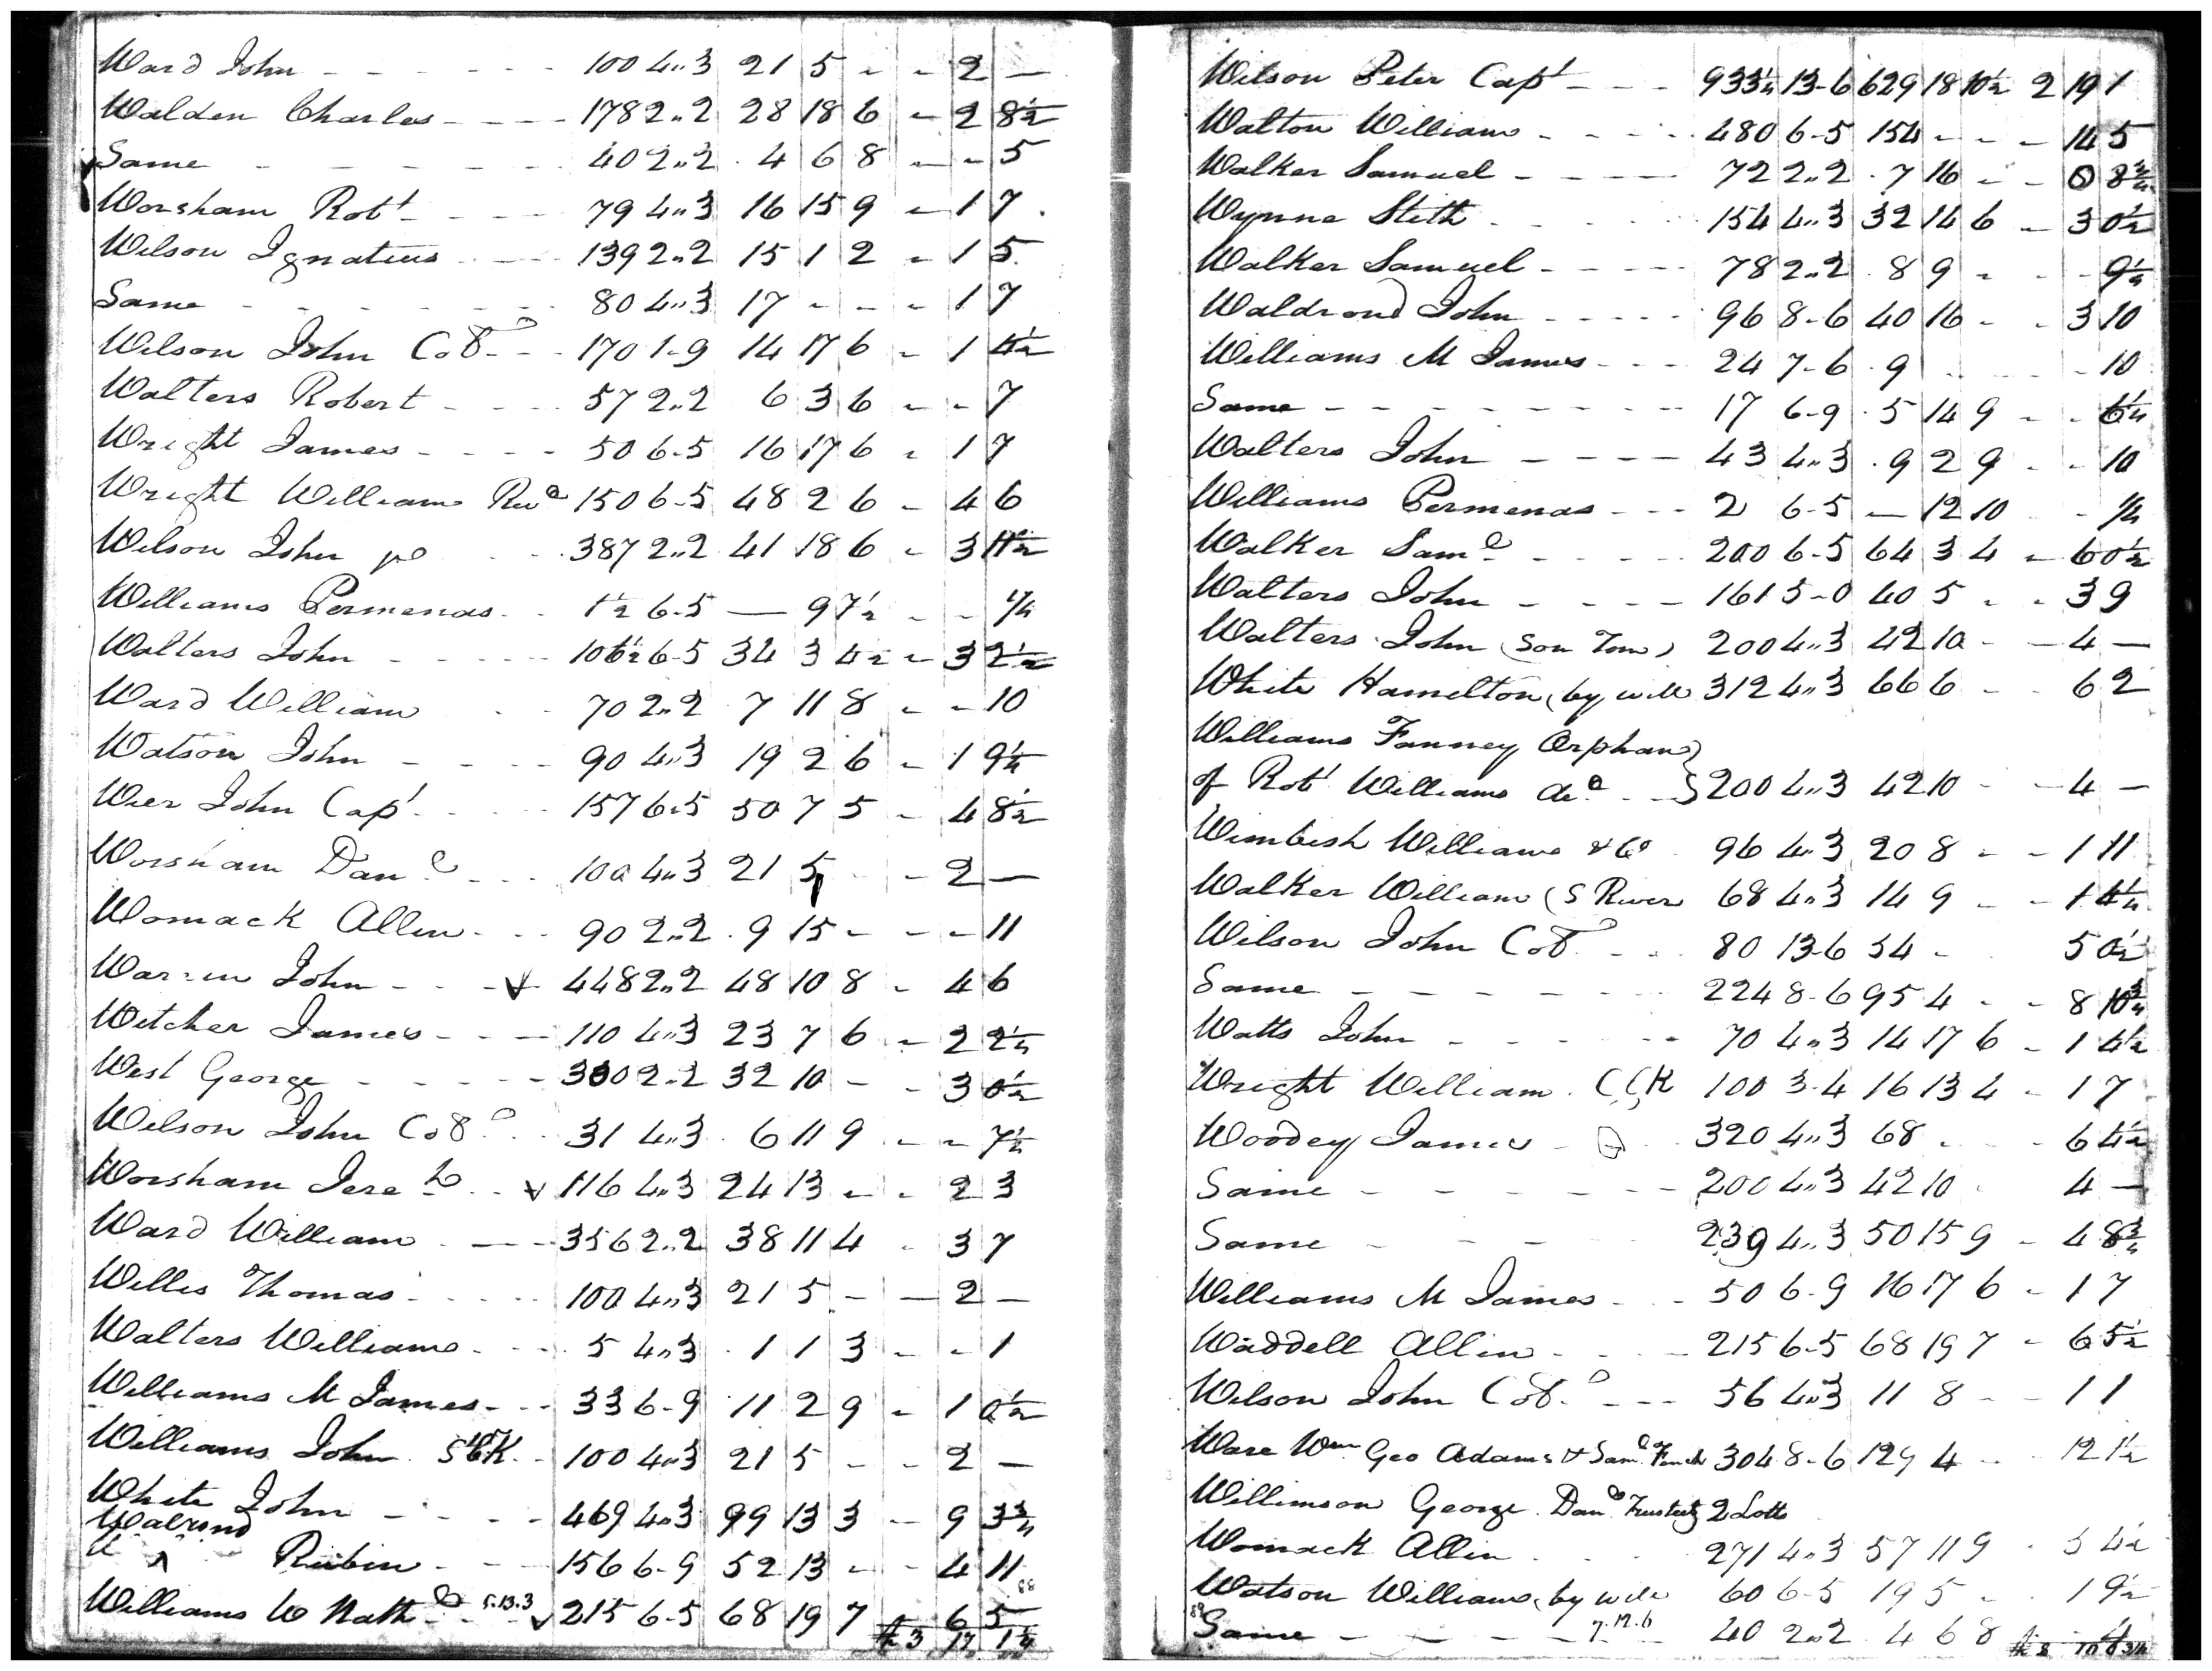 Ward John - - - - - - 100 4..3 21 5 - - 2 -
Walden Charles - - - - 178 2..2 28 18 6 - 2 8½
Same - - - - - 40 2..2 4 6 8 - - 5
Worsham Robt - - - - 79 4..3 16 15 9 - 1 7
Wilson Ignatius - - - 139 2..2 15 1 2 - 1 5
Same - - - - - - 80 4..3 17 - - - 1 7
Wilson John Colo - - - 170 1-9 14 17 6 - 1 4½
Walters Robert - - - 57 2..2 6 3 6 - - 7
Wright James - - - - 50 6-5 16 17 6 - 1 7
Wright William 150 6-5 48 2 6 - 4 6
Wilson John - - 387 2..2 41 18 6 - 3 11½
Williams Permenas - - 1½ 6-5 - 9 7½ - - ¼
Walters John - - - - 106½ 6-5 34 3 4½ - 3 2½
Ward William - - 70 2..2 7 11 8 - - 10
Watson John - - - 90 4..3 19 2 6 - 1 9¼
Wier John Capt - - - 157 6-5 50 7 5 - 4 8½
Worsham Danl - - - 100 4..3 21 5 - 2 -
Womack Allen - - - 90 2..2 9 15 - - - 11
Warren John - - - 448 2..2 48 10 8 - 4 6
Witcher James - - - 110 4..3 23 7 6 - 2 2¼
West George - - - - - 300 2..2 32 10 - - 3 0½
Wilson John Colo - - 31 4..3 6 11 9 - - 7½
Worsham Jereh - - 116 4..3 24 13 - - 2 3
Ward William - - - 356 2..2 38 11 4 - 3 7
Willis Thomas - - - - 100 4..3 21 5 - - 2 -
Walters William - - - 5 4..3 1 1 3 - - 1
Williams M James - - - 33 6-9 11 2 9 - 1 0½
Williams John - 100 4..3 21 5 - - 2 -
White John - - - - 469 4..3 99 13 3 - 9 3¾
Walrond
Rubin - - - 156 6-9 52 13 - - 4 11
Williams W Nath - - 5.13.3 215 6-5 68 19 7 - 6 5
Wilson Peter Capt - - - 933¼ 13-6 629 18 10½ 2 19 1
Walton William - - - - 480 6-5 154 - - - 14 5
Walker Samuel - - - - 72 2..2 7 16 - - 8¾
Wynne Stith - - - - 154 4..3 32 14 6 - 3 0½
Walker Samuel - - - - 78 2..2 8 9 - - - 9¼
Waldrond John - - - - - 96 8-6 40 16 - - 3 10
Williams M James - - - 24 7-6 9 - - - 10
Same - - - - - - - - 17 6-9 5 14 9 - - 6¼
Walters John - - - - 43 4..3 9 2 9 - - 10
Williams Permenas - - - 2 6-5 - 12 10 - - ¼
Walker Saml - - - - 200 6-5 64 3 4 - 6 0½
Walters John - - - - 161 5-0 40 5 - - 3 9
Walters John (Son Tom) 200 4..3 42 10 - - 4 -
White Hamelton (by will 312 4..3 66 6 - - 6 2
Williams Fanney Orphan
of Robt Williams - - 200 4..3 42 10 - - 4 -
Wimbish William & Co 96 4..3 20 8 - - 1 11
Walker William (S River 68 4..3 14 9 - - 1 4¼
Wilson John Colo - - 80 13-6 54 - 5 0½
Same - - - - - - 224 8-6 95 4 - - 8 10¾
Watts John - - - - - 70 4..3 14 17 6 - 1 4½
Wright William 100 3-4 16 13 4 - 1 7
Woodey James - 320 4..3 68 - - - 6 4½
Same - - - - - - 200 4..3 42 10 4 -
Same - - - - 239 4..3 50 15 9 - 4 8¾
Williams M James - - - 50 6-9 16 17 6 - 1 7
Waddell Allin - - - - 215 6-5 68 19 7 - 6 5½
Wilson John Colo - - - 56 4..3 11 8 - - 1 1
Ware Wm Geo Adams & Saml 304 8-6 129 4 - - 12 1½
Willimson George Danl Trustees 2 Lotts
Womack Allin - - - 271 4..3 57 11 9 - 5 4½
Watson William, by will 60 6-5 19 5 - - 1 9½
Same - - - - 7.12.6 40 2..2 4 6 8 - 4